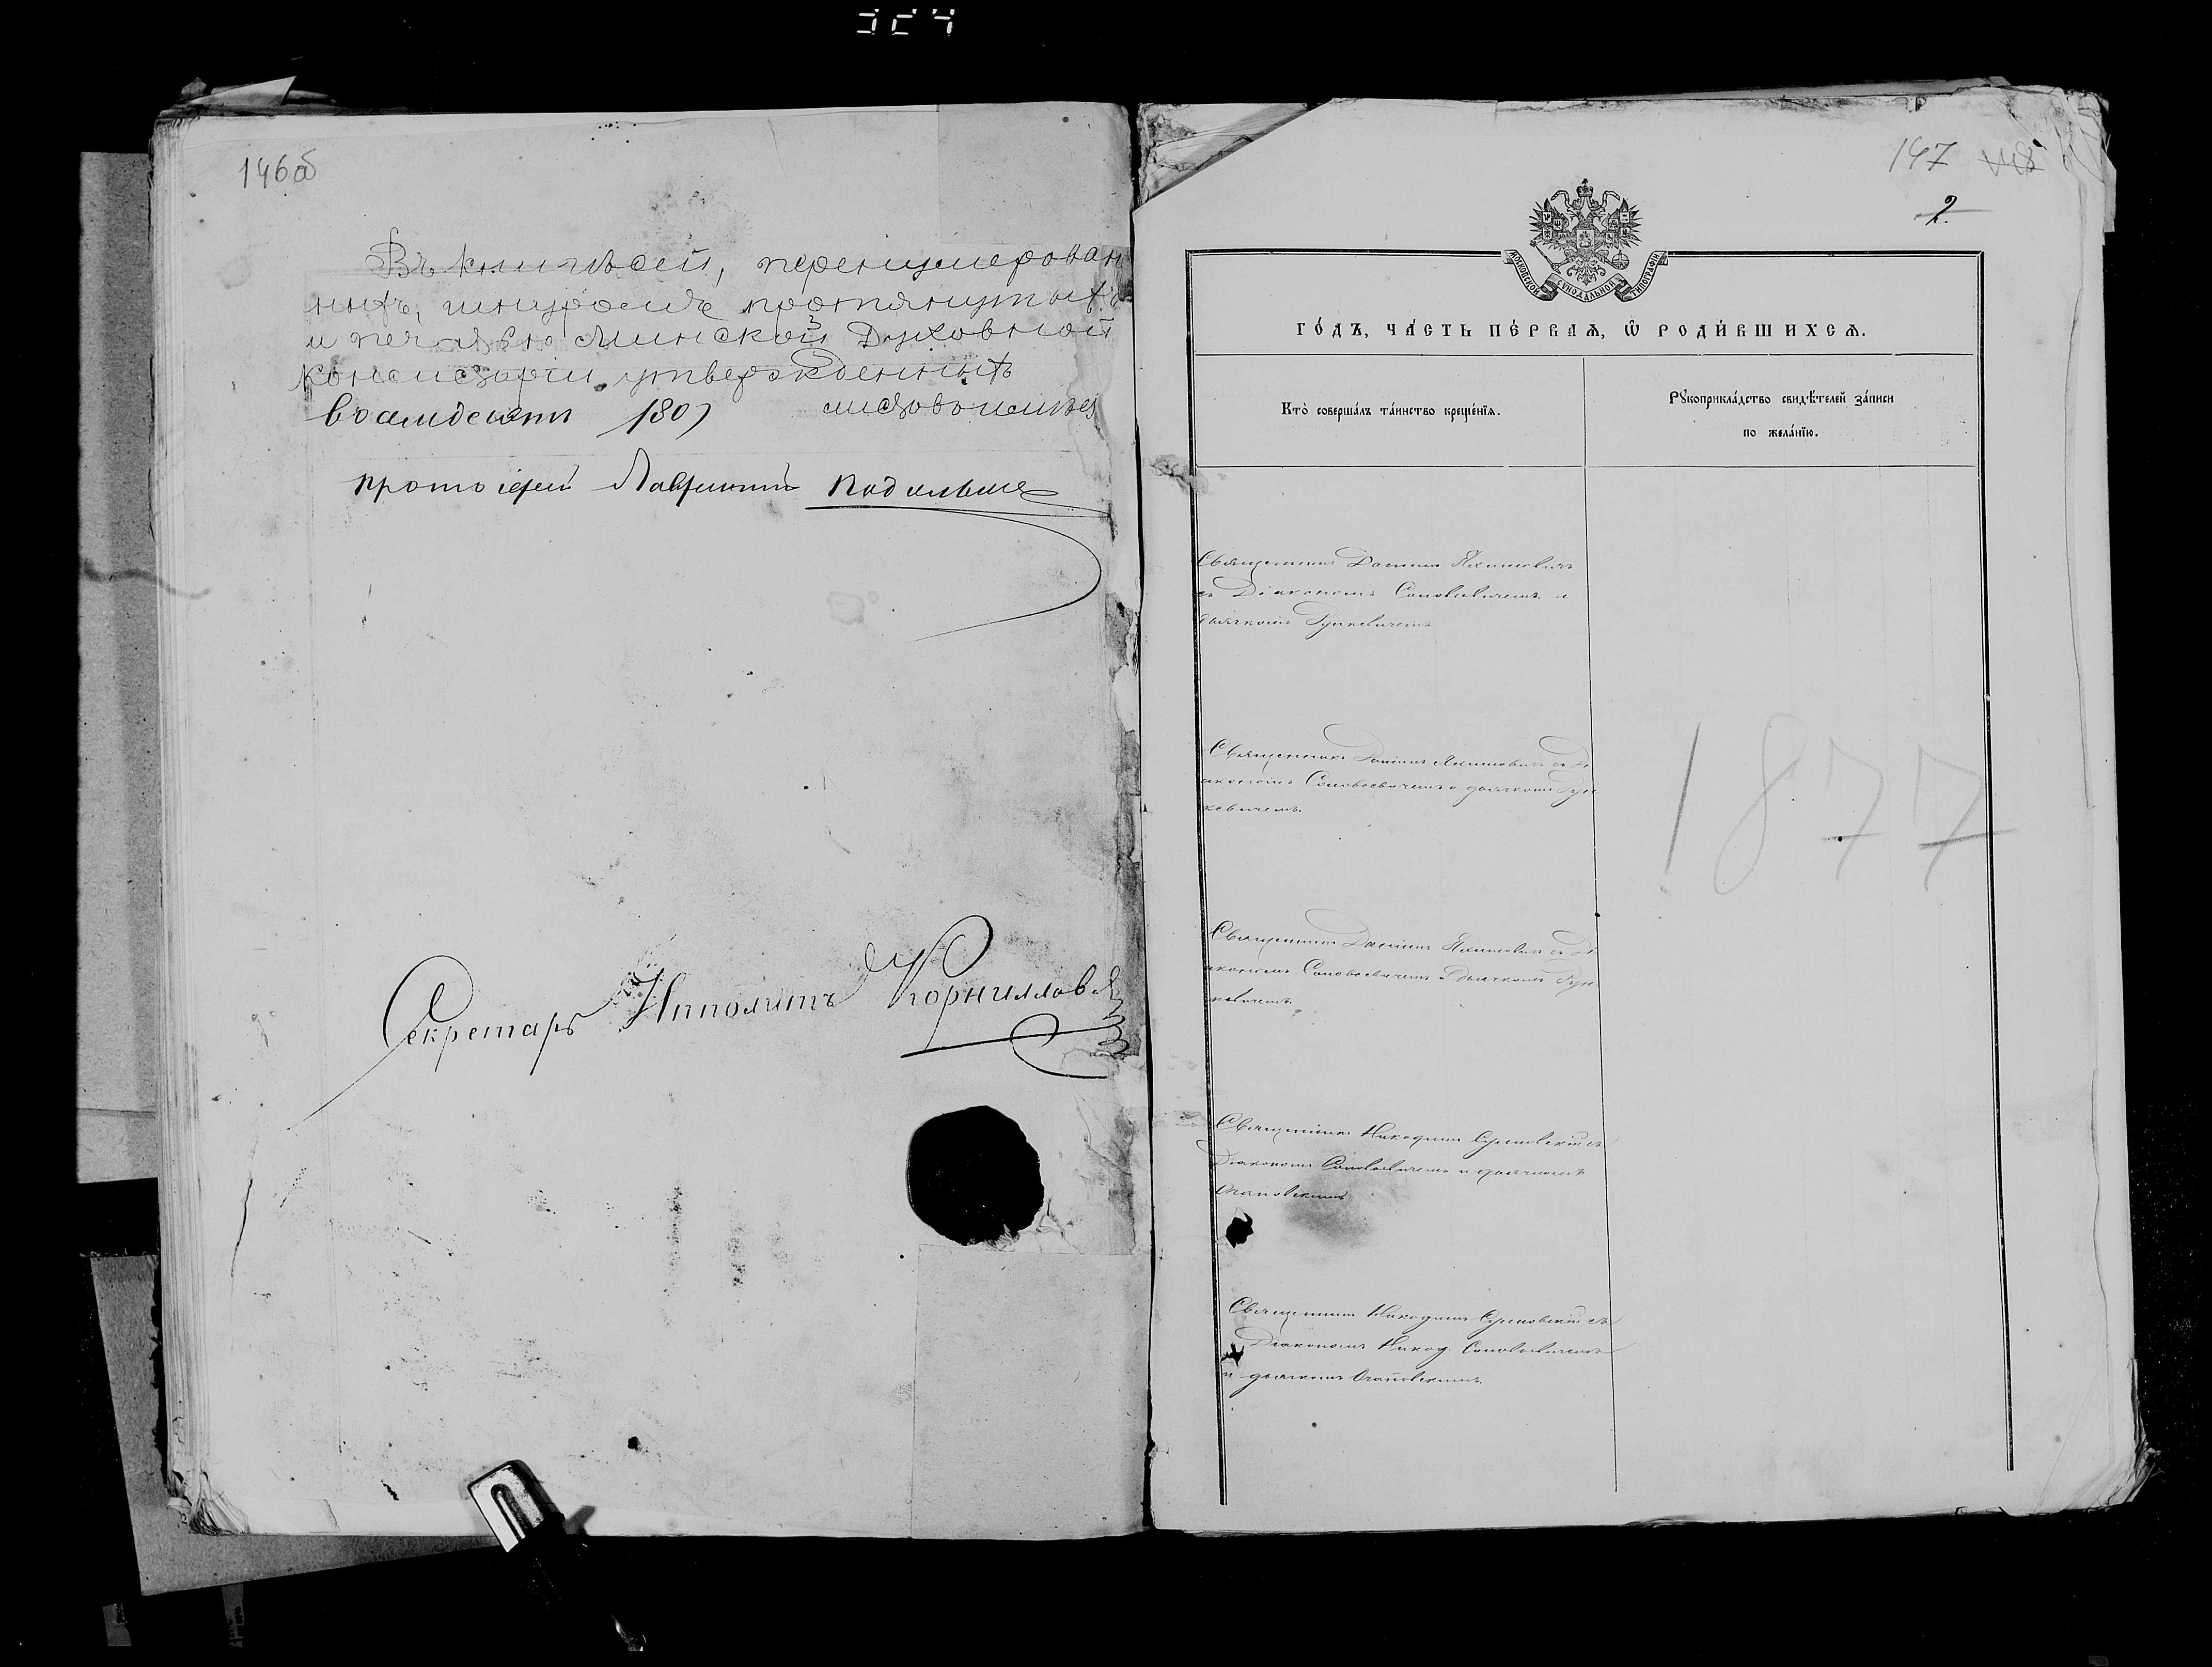 146об
Въ книгѣ сей, перенумерован
ныхъ, шнуромъ протянутыхъ
и печатью Минской Духовной
Консисторіи утвержденныхъ
восемдесятъ /80/ листовъ имѣется
протоіерей Лаврентій
Секретарь Ипполитъ Корнилловъ
147
2
МОСКОВСКОЙ СѴНОДАЛЬНОЙ ТИПОГРАФІИ
ГО́ДЪ, ЧА́СТЬ ПЕ́РВАѦ, Ѡ҆ РОДИ́ВШИХСѦ.
Кто̀ соверша́лъ та́инство креще́нїѧ.
Рꙋкоприкла́дство свидѣ́телей за́писи
по жела́нїю.
Священникъ Даніилъ Яхимовичъ
съ Діакономъ Соловьевичемъ и
дьячкомъ Рункевичемъ
Священникъ Даніилъ Яхимовичъ съ Ді
акономъ Соловьевичемъ и дьячкомъ Рун
кевичемъ.
1877
Священникъ Даніилъ Яхимовичъ съ Ді
акономъ Соловьевичемъ и дьячкомъ Рун
кевичемъ
Священникъ Никодимъ съ
Діакономъ Соловьевичемъ и дьячкомъ
Священникъ Никодимъ съ
Діакономъ Никод. Соловьевичемъ
и дьячкомъ